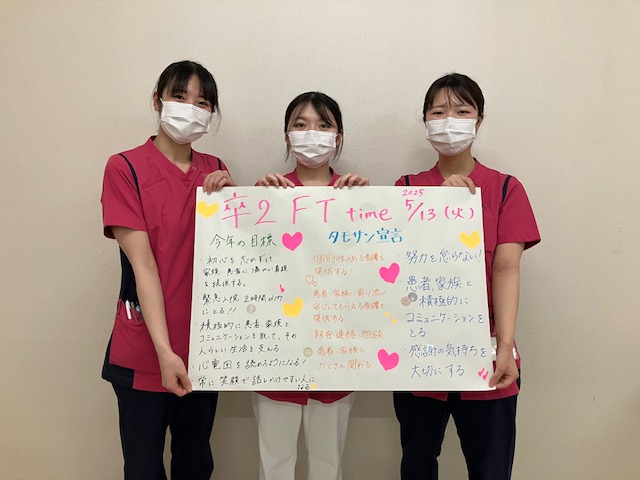 卒2 FT time 2025 5/13(火)
今年の目標
・初心を忘れずに
家族・患者に
を提供する。
緊急入院 2時間以内
にとる!!
・積極的に患者、家族と
コミュニケーションを取って、その
人らしい生活を支える
・心電図を読めるようになる!
常に笑顔で話しかけやすい人に
なる
タモサン宣言
・個別性のある看護を
提供する!
・患者・家族に寄り添い
安心してもらえる看護を
提供する
・報告・連絡・相談
・患者・家族と
たくさん関わる
・努力を怠らない!
・患者、家族と
積極的に
コミュニケーションを
とる
・感謝の気持ちを
大切にする